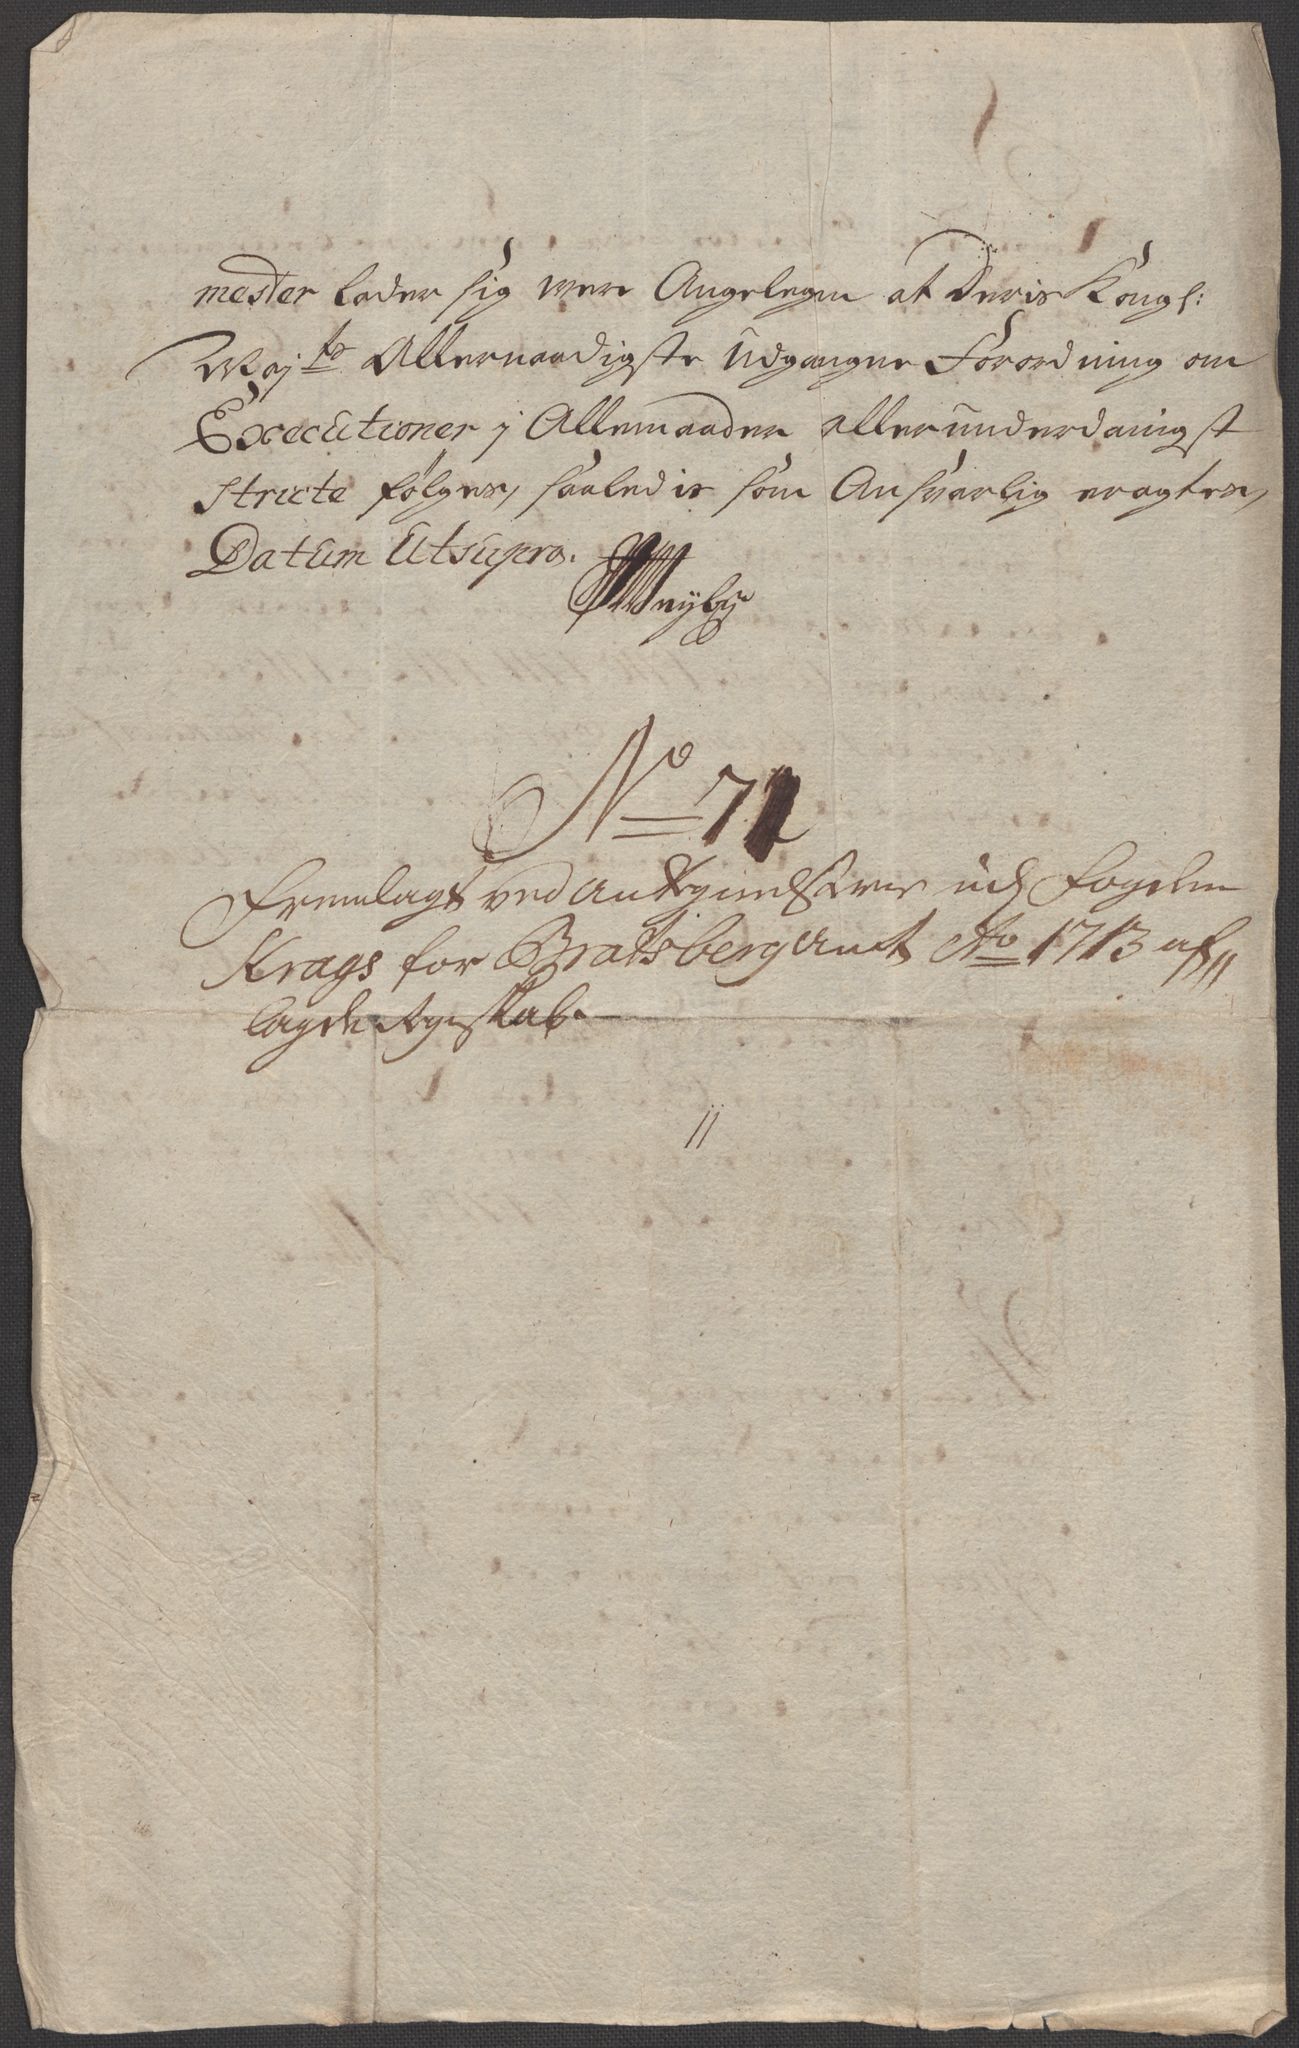 mester lader sig were Angelegen at Deris Kongl:
Maj.ts Allernaadigste Udgangne Forordning om
Executioner j Allemaader allerunderdanigst
stricte følges, saaledis som Ansvarlig eragtes,
Datum Utsupra.
No 71
Fremlagt ved Antegnelserne udj Fogden
Krags for Bratsberg Amt Ao 1713 af//
lagde Regnskab.
//